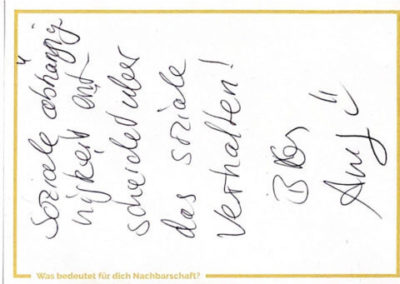 Soziale abhängig
nigkeit ent-
scheidet über
das soziale
Verhalten!
Was bedeutet für dich Nachbarschaft?